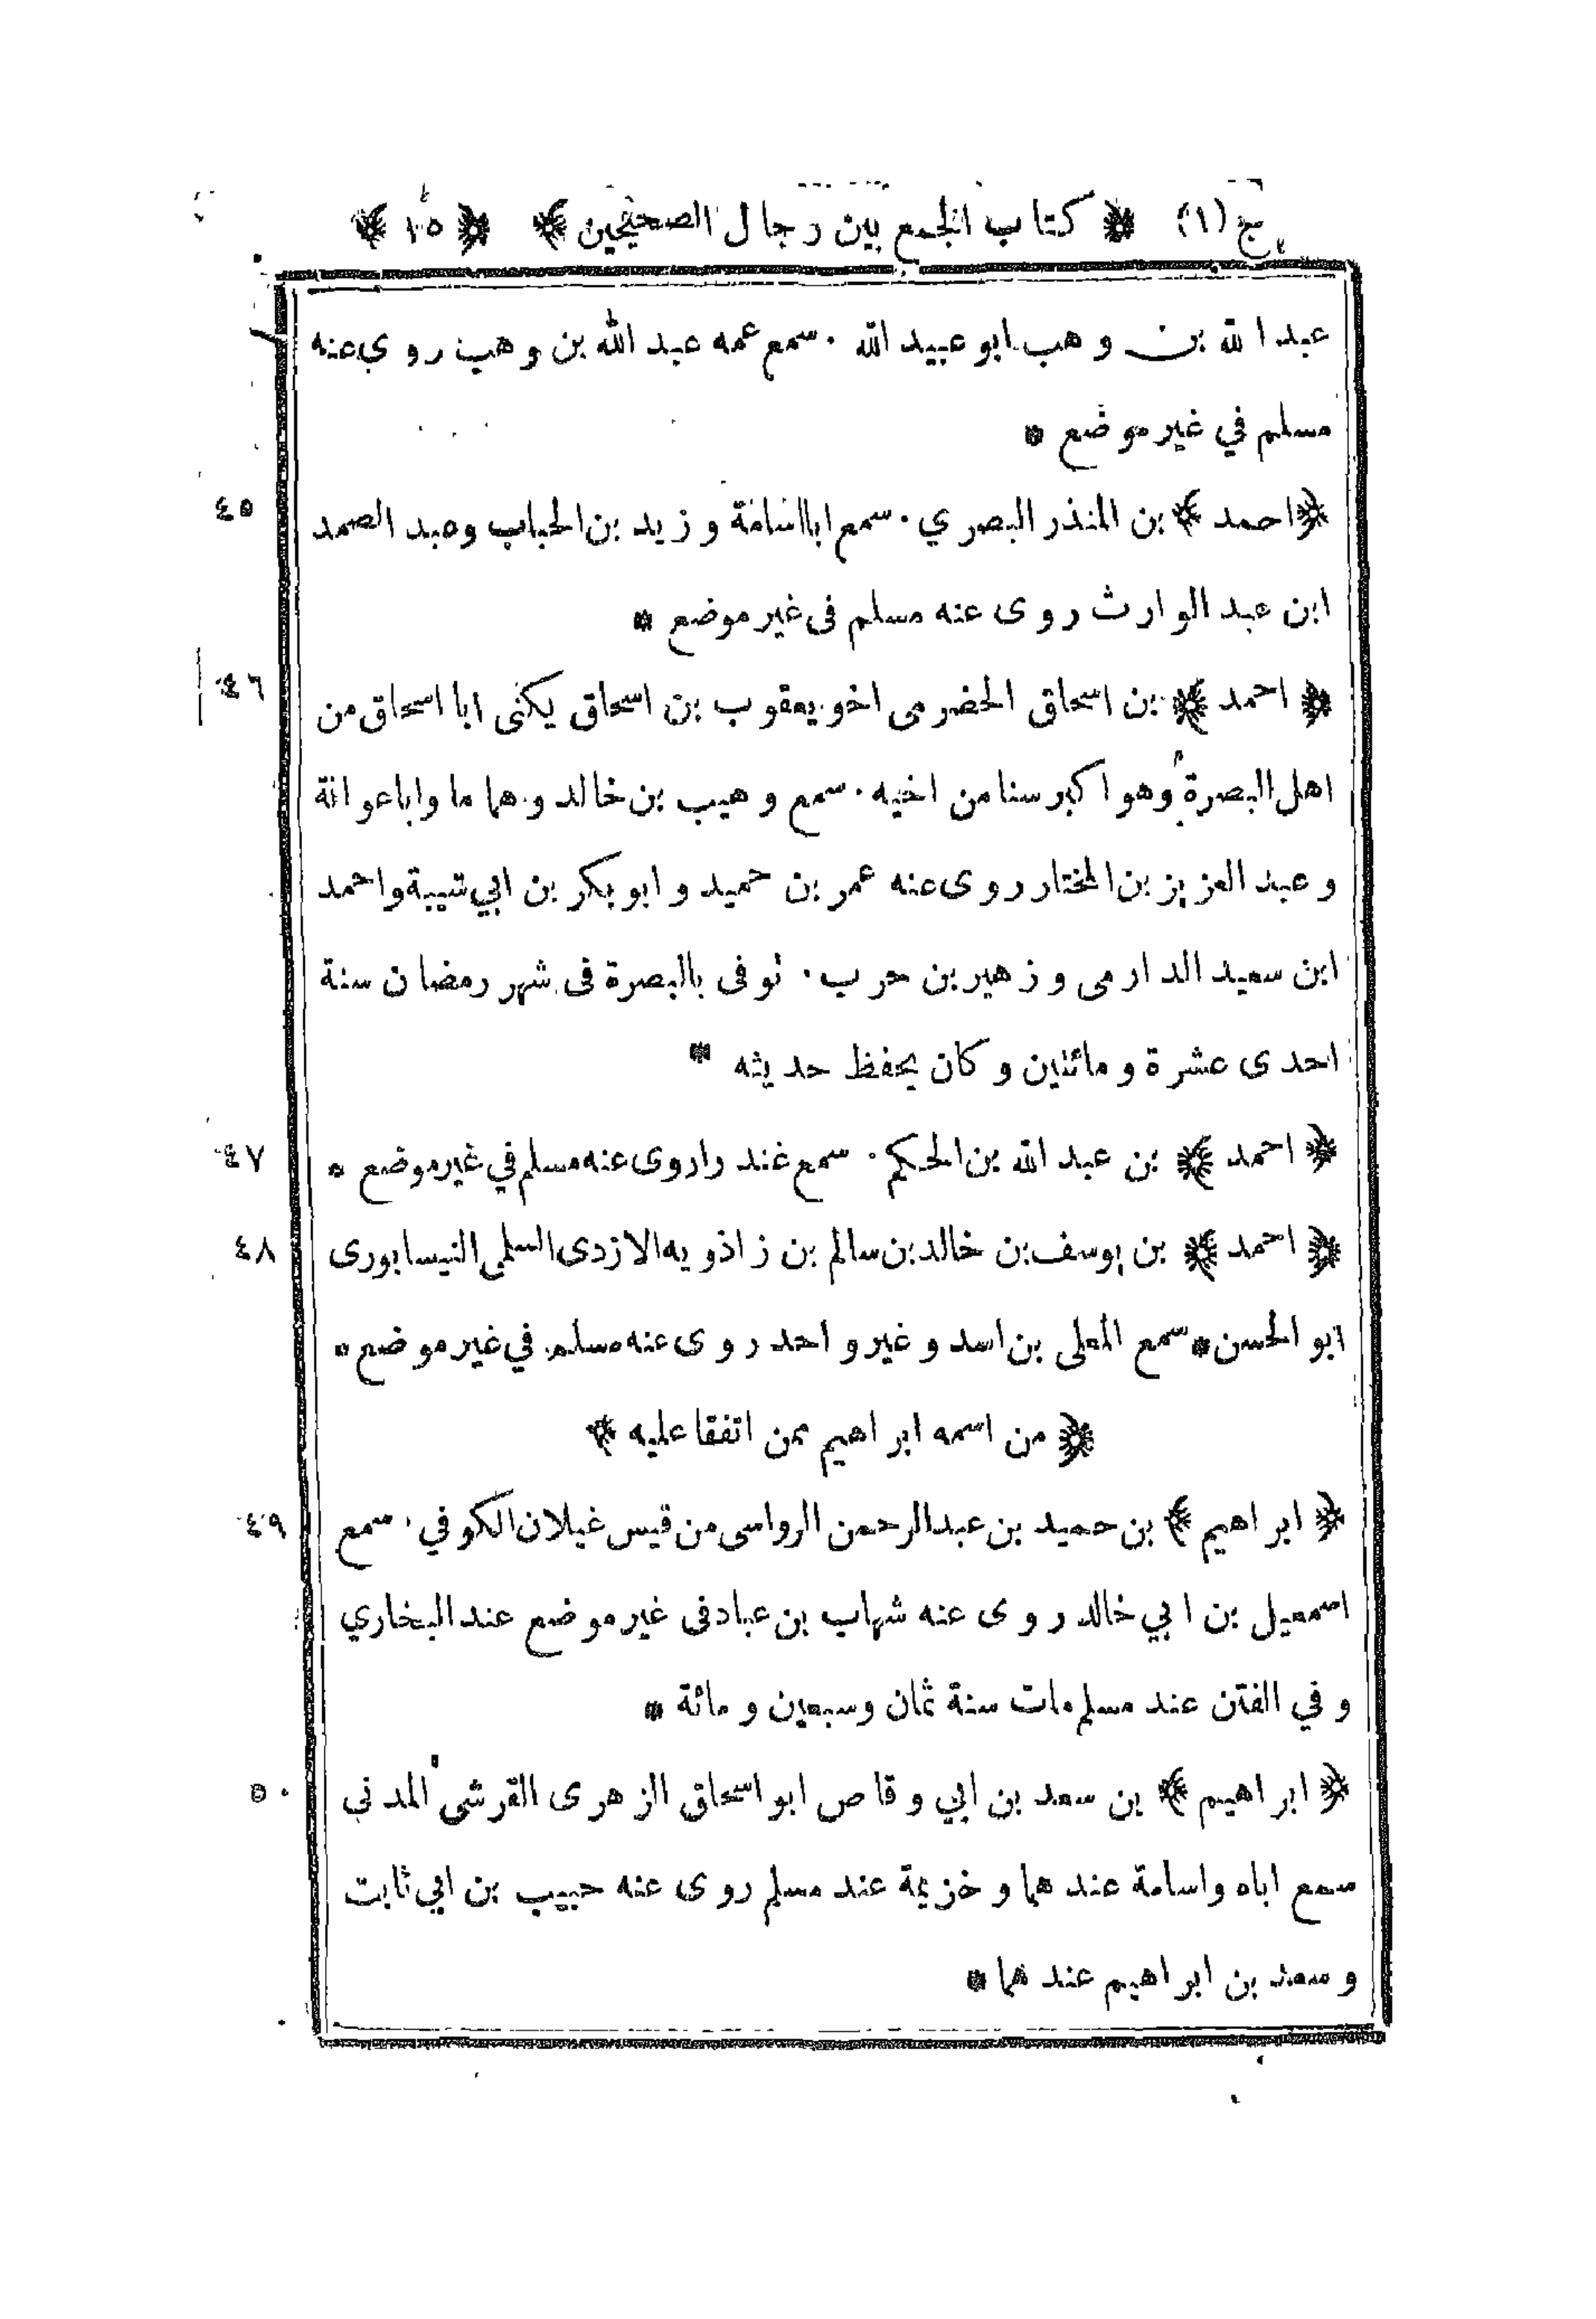 ج (١) ﴿ كتاب الجمع بين رجال الصحيحين ﴾ ﴿ ١٥ ﴾
عبد الله بن وهب ابو عبيد الله . سمع عمه عبد الله بن وهب روى عنه
مسلم في غير موضع *
٤٥ ﴿ احمد ﴾ بن المنذر البصري . سمع ابا اسامة وزيد بن الحباب وعبد الصمد
ابن عبد الوارث روى عنه مسلم فى غير موضع *
٤٦ ﴿ احمد ﴾ بن اسحاق الحضرمى اخو يعقوب بن اسحاق يكنى ابا اسحاق من
اهل البصرة وهو اكبر سنا من اخيه . سمع وهيب بن خالد وهما ما وابا عوانة
وعبد العزيز بن المختار روى عنه عمر بن حميد وابو بكر بن ابي شيبة واحمد
ابن سعيد الدارمى وزهير بن حرب . توفى بالبصرة فى شهر رمضان سنة
احدى عشرة ومائتين وكان يحفظ حديثه *
٤٧ ﴿ احمد ﴾ بن عبد الله بن الحكم . سمع غندرا روى عنه مسلم في غير موضع *
٤٨ ﴿ احمد ﴾ بن يوسف بن خالد بن سالم بن زاذويه الازدى السلمى النيسابورى
ابو الحسن * سمع المعلى بن اسد وغير واحد روى عنه مسلم في غير موضع *
﴿ من اسمه ابراهيم ممن اتفقا عليه ﴾
٤٩ ﴿ ابراهيم ﴾ بن حميد بن عبد الرحمن الرواسى من قيس غيلان الكوفي . سمع
اسمعيل بن ابي خالد روى عنه شهاب بن عباد فى غير موضع عند البخاري
وفي الفتن عند مسلم مات سنة ثمان وسبعين ومائة *
٥٠ ﴿ ابراهيم ﴾ بن سعد بن ابي وقاص ابو اسحاق الزهرى القرشى المدني
سمع اباه واسامة عندهما وخزيمة عند مسلم روى عنه حبيب بن ابي ثابت
وسعد بن ابراهيم عندهما *